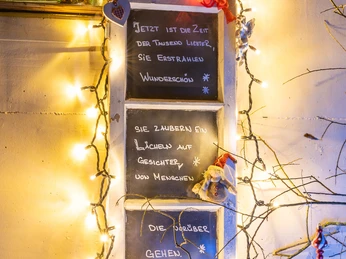 Jetzt ist die Zeit
der Tausend Lichter,
Sie Erstrahlen
Wunderschön
Sie zaubern ein
Lächeln auf
Gesichter,
von Menschen
Die vorüber
gehen.